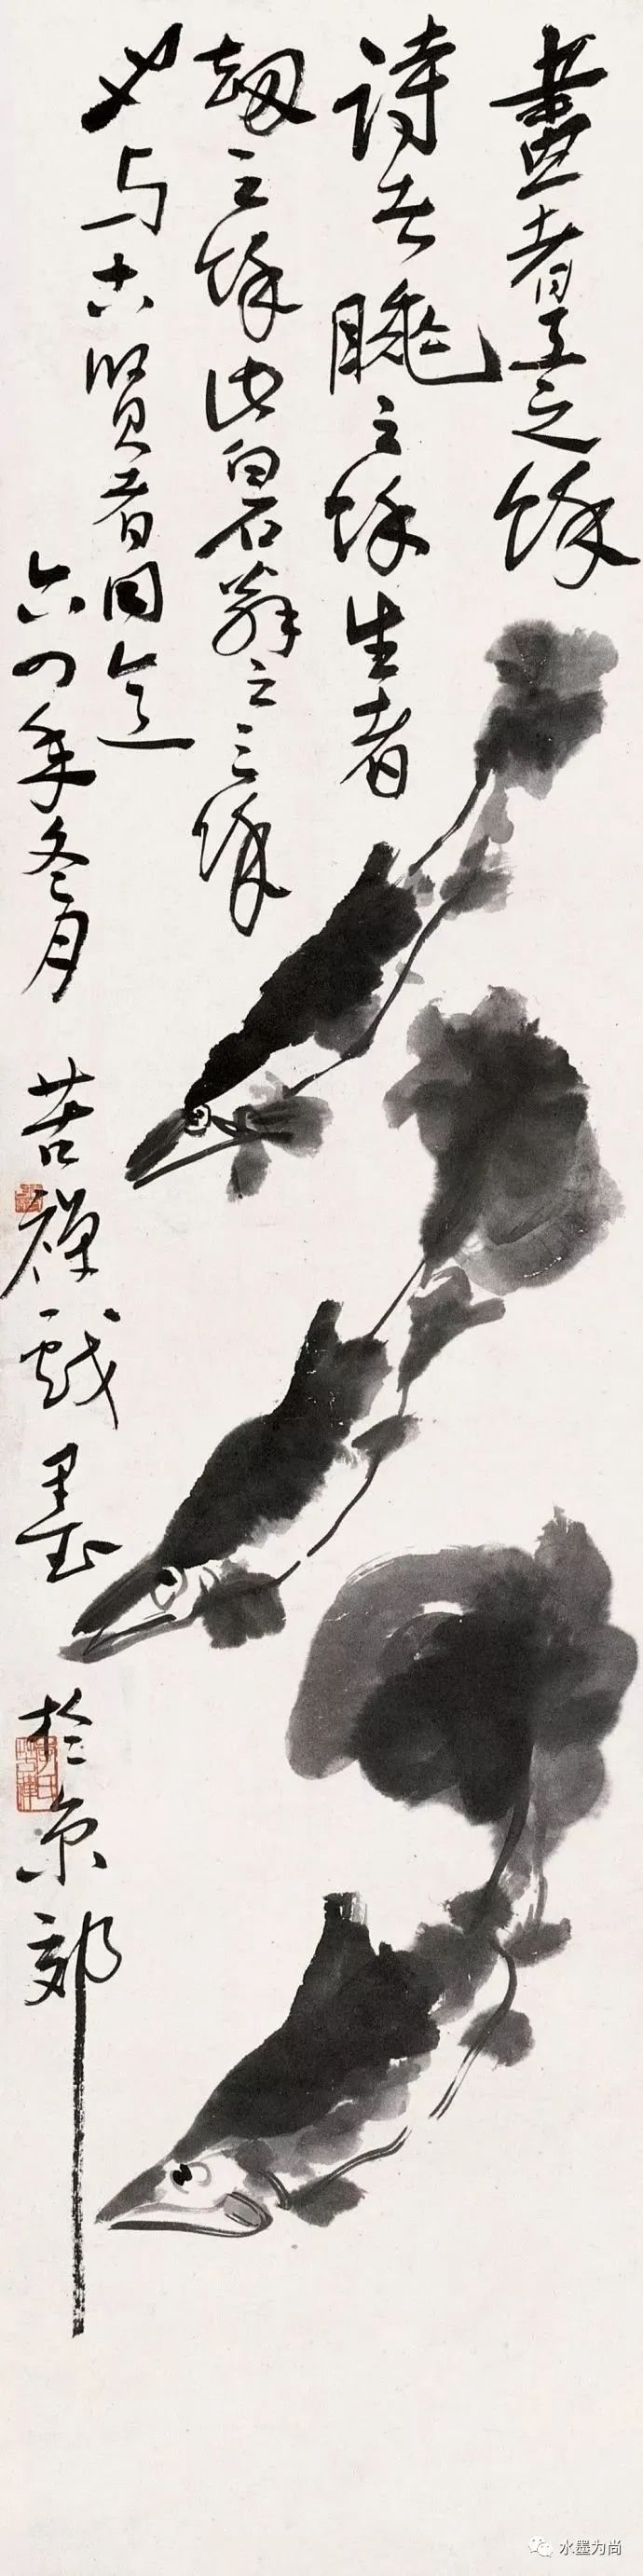 畫者工之餘
詩者之餘生者
劫之餘此白石之三餘
与古賢者同
六四年冬月 苦禪戲墨 於京郊
水墨为尚